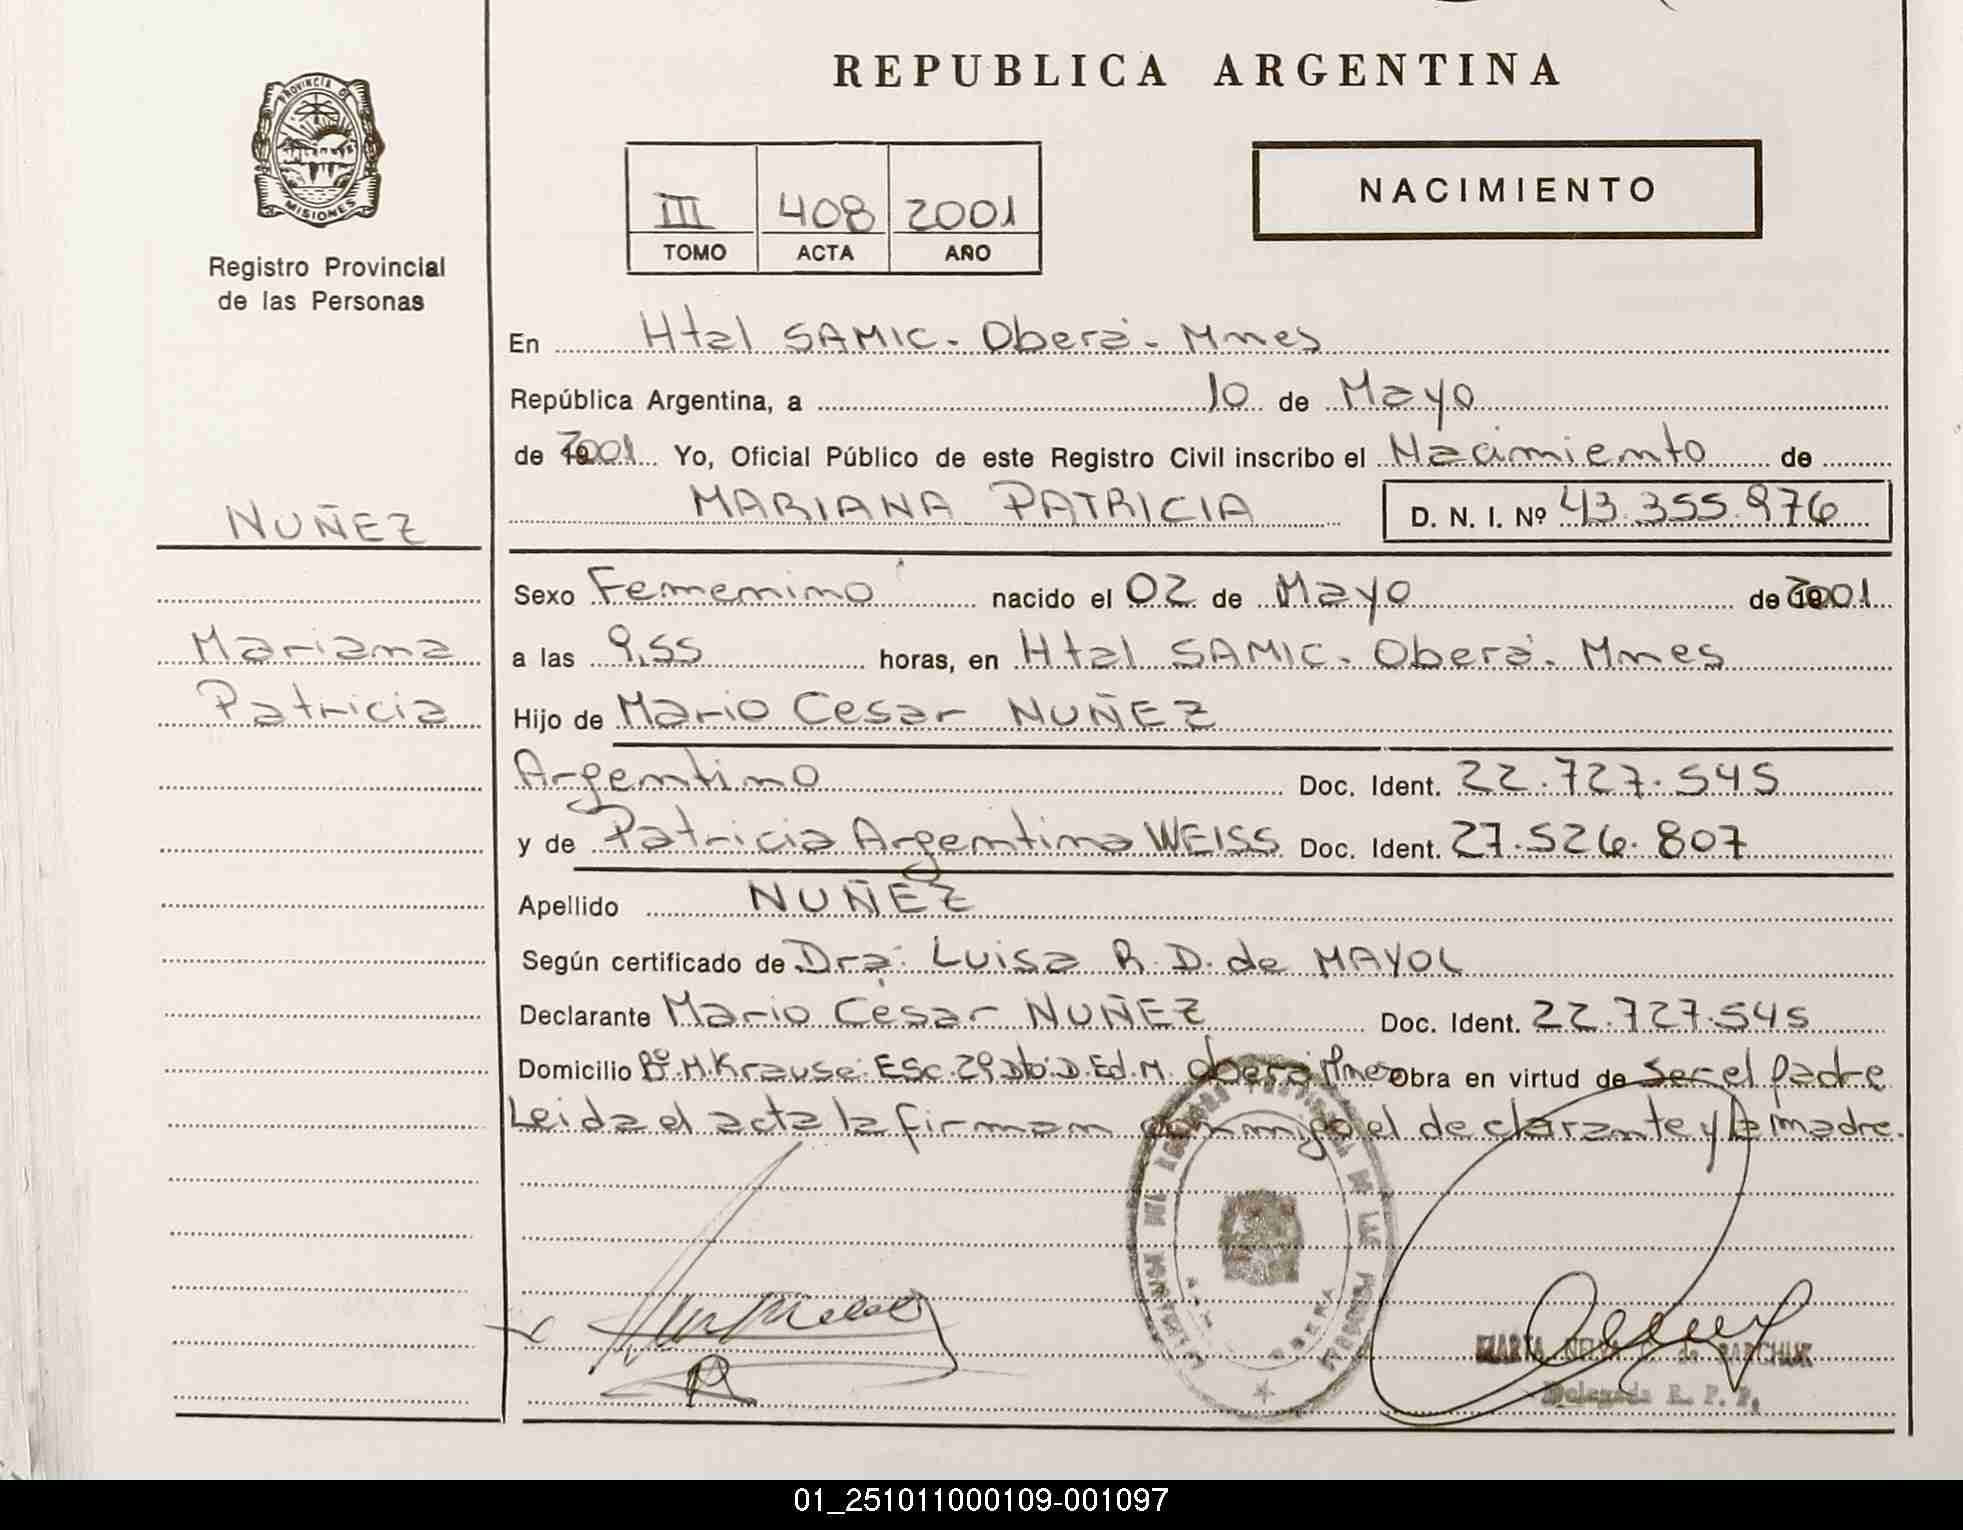 REPUBLICA ARGENTINA
PROVINCIA D
MISIONES
Registro Provincial
de las Personas
III 408 2001
TOMO ACTA AÑO
NACIMIENTO
En Htal SAMIC - Oberá - Mnes
República Argentina, a 10 de Mayo
de 2001 Yo, Oficial Público de este Registro Civil inscribo el Nacimiento de
MARIANA PATRICIA D. N. I. Nº 43.355.976
NUÑEZ
Mariana
Patricia
Sexo Femenino nacido el 02 de Mayo de 2001
a las 9,55 horas, en Htal SAMIC - Oberá - Mnes
Hijo de Mario Cesar NUÑEZ
Argentino Doc. Ident. 22.727.545
y de Patricia Argentina WEISS Doc. Ident. 27.526.807
Apellido NUÑEZ
Según certificado de Dra. Luisa R. D. de MAYOL
Declarante Mario César NUÑEZ Doc. Ident. 22.727.545
Domicilio Bº M. Krause Esc. 29 Dto. D. Ed. M. Oberá Mnes Obra en virtud de ser el padre
Leida el acta la firman conmigo el declarante y la madre.
MARTA de
Delegada R. P. P.
01_251011000109-001097